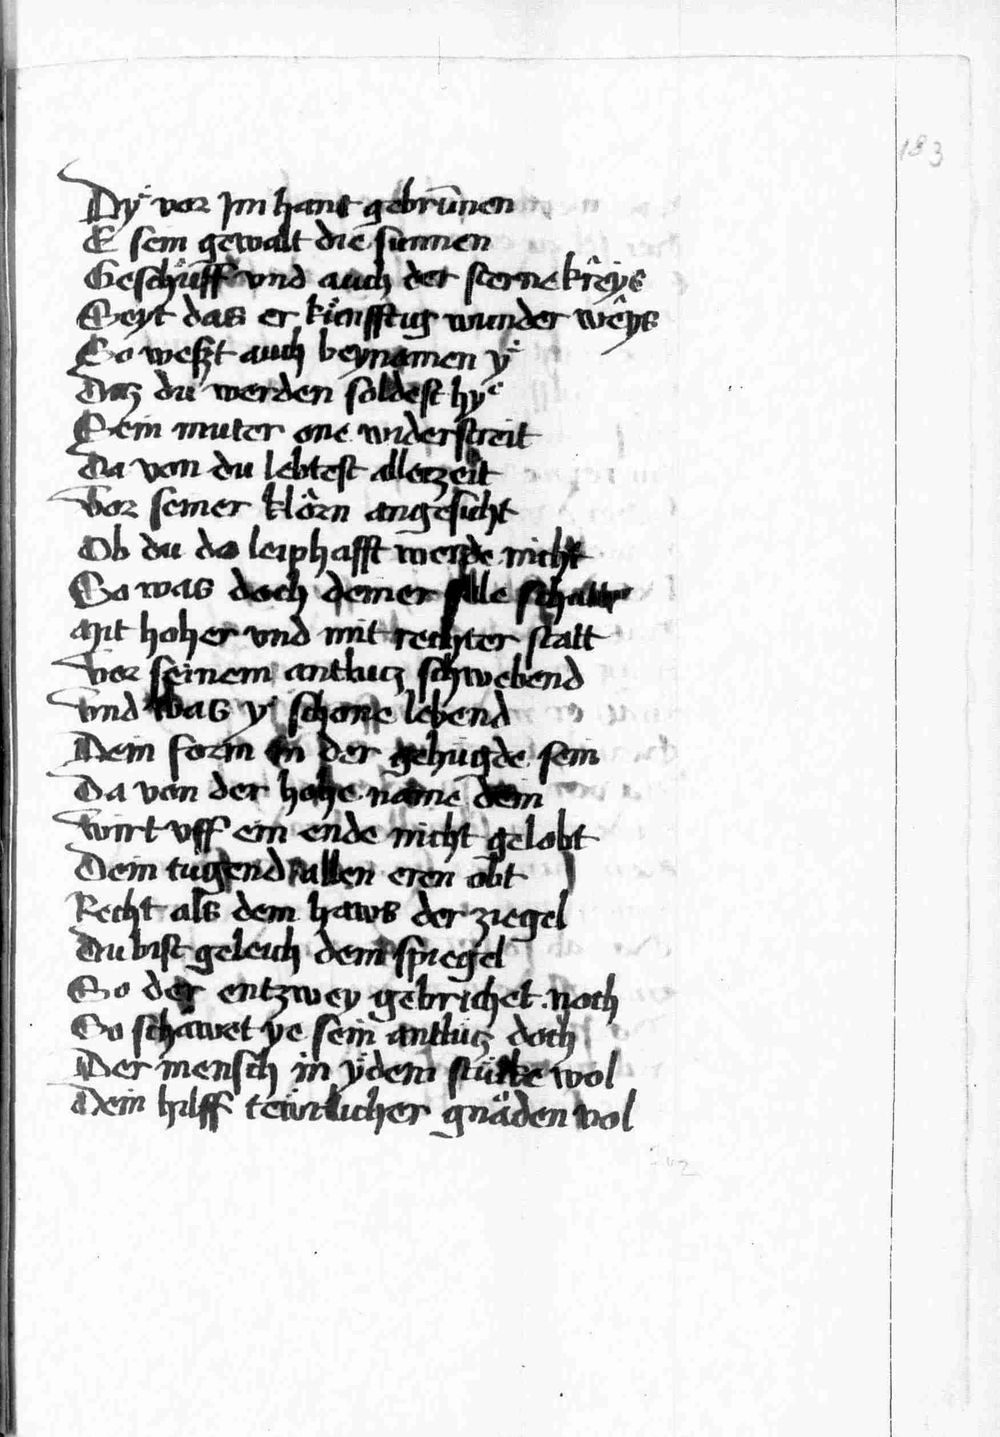 183
Dy͛ vor Im hant gebrūnen
E sein gewalt die sunnen
Geschůff vnd auch der sterne krêys
Seyt das er kůnfftig wunder wêys
So weßt auch beynamen y͛
Daz du werden soldest hy͛
Sein muter one widerstreit
Da von du lebtest allerzeit
Vor seiner klôrn angesicht
Ob du do leiphafft werde nicht
So was doch deiner selle schatt
Mit hoher vnd mit rechter statt
Vor seinem antlucz schwebend
Vnd was y͛ schone lebend
Dein form in der gehůgde sein
Da von der hohe name dein
Wirt vff ein ende nicht gelobt
Dein tugend allen eren obt
Recht als dem haws der ziegel
Du bist geleich dem spiegel
So der entzwey gebrichet noch
So schawet ye sein antlucz doch
Der mensch in ydem stůke wol
Dein hilff teůrlicher gnâden vol